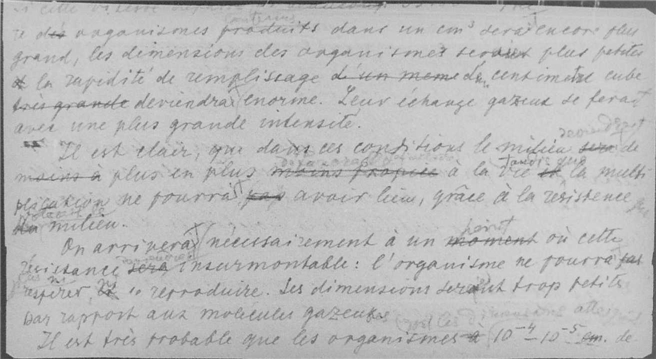 contraints
re des organismes produits dans un cm³ serait encore plus
grand, les dimensions des organismes seront plus petites
et la rapidité de remplissage d'un meme de centimetre cube
très grande deviendra enorme. Leur échange gazeux se ferait
avec une plus grande intensité.
deviendrait
Il est clair, que dans ces conditions le milieu sera de
tandis que
moins à plus en plus moins propice à la vie et la multi
plication ne pourrait pas avoir lieu, grâce à la résistence
du milieu.
point
On arrivera nécessairement à un moment où cette
resistance sera insurmontable: l'organisme ne pourra pas
respirer et se reproduire. Ses dimensions seraient trop petites
par rapport aux molecules gazeuses
Il est très probable que les organismes à 10⁻⁴-10⁻⁵ cm. de